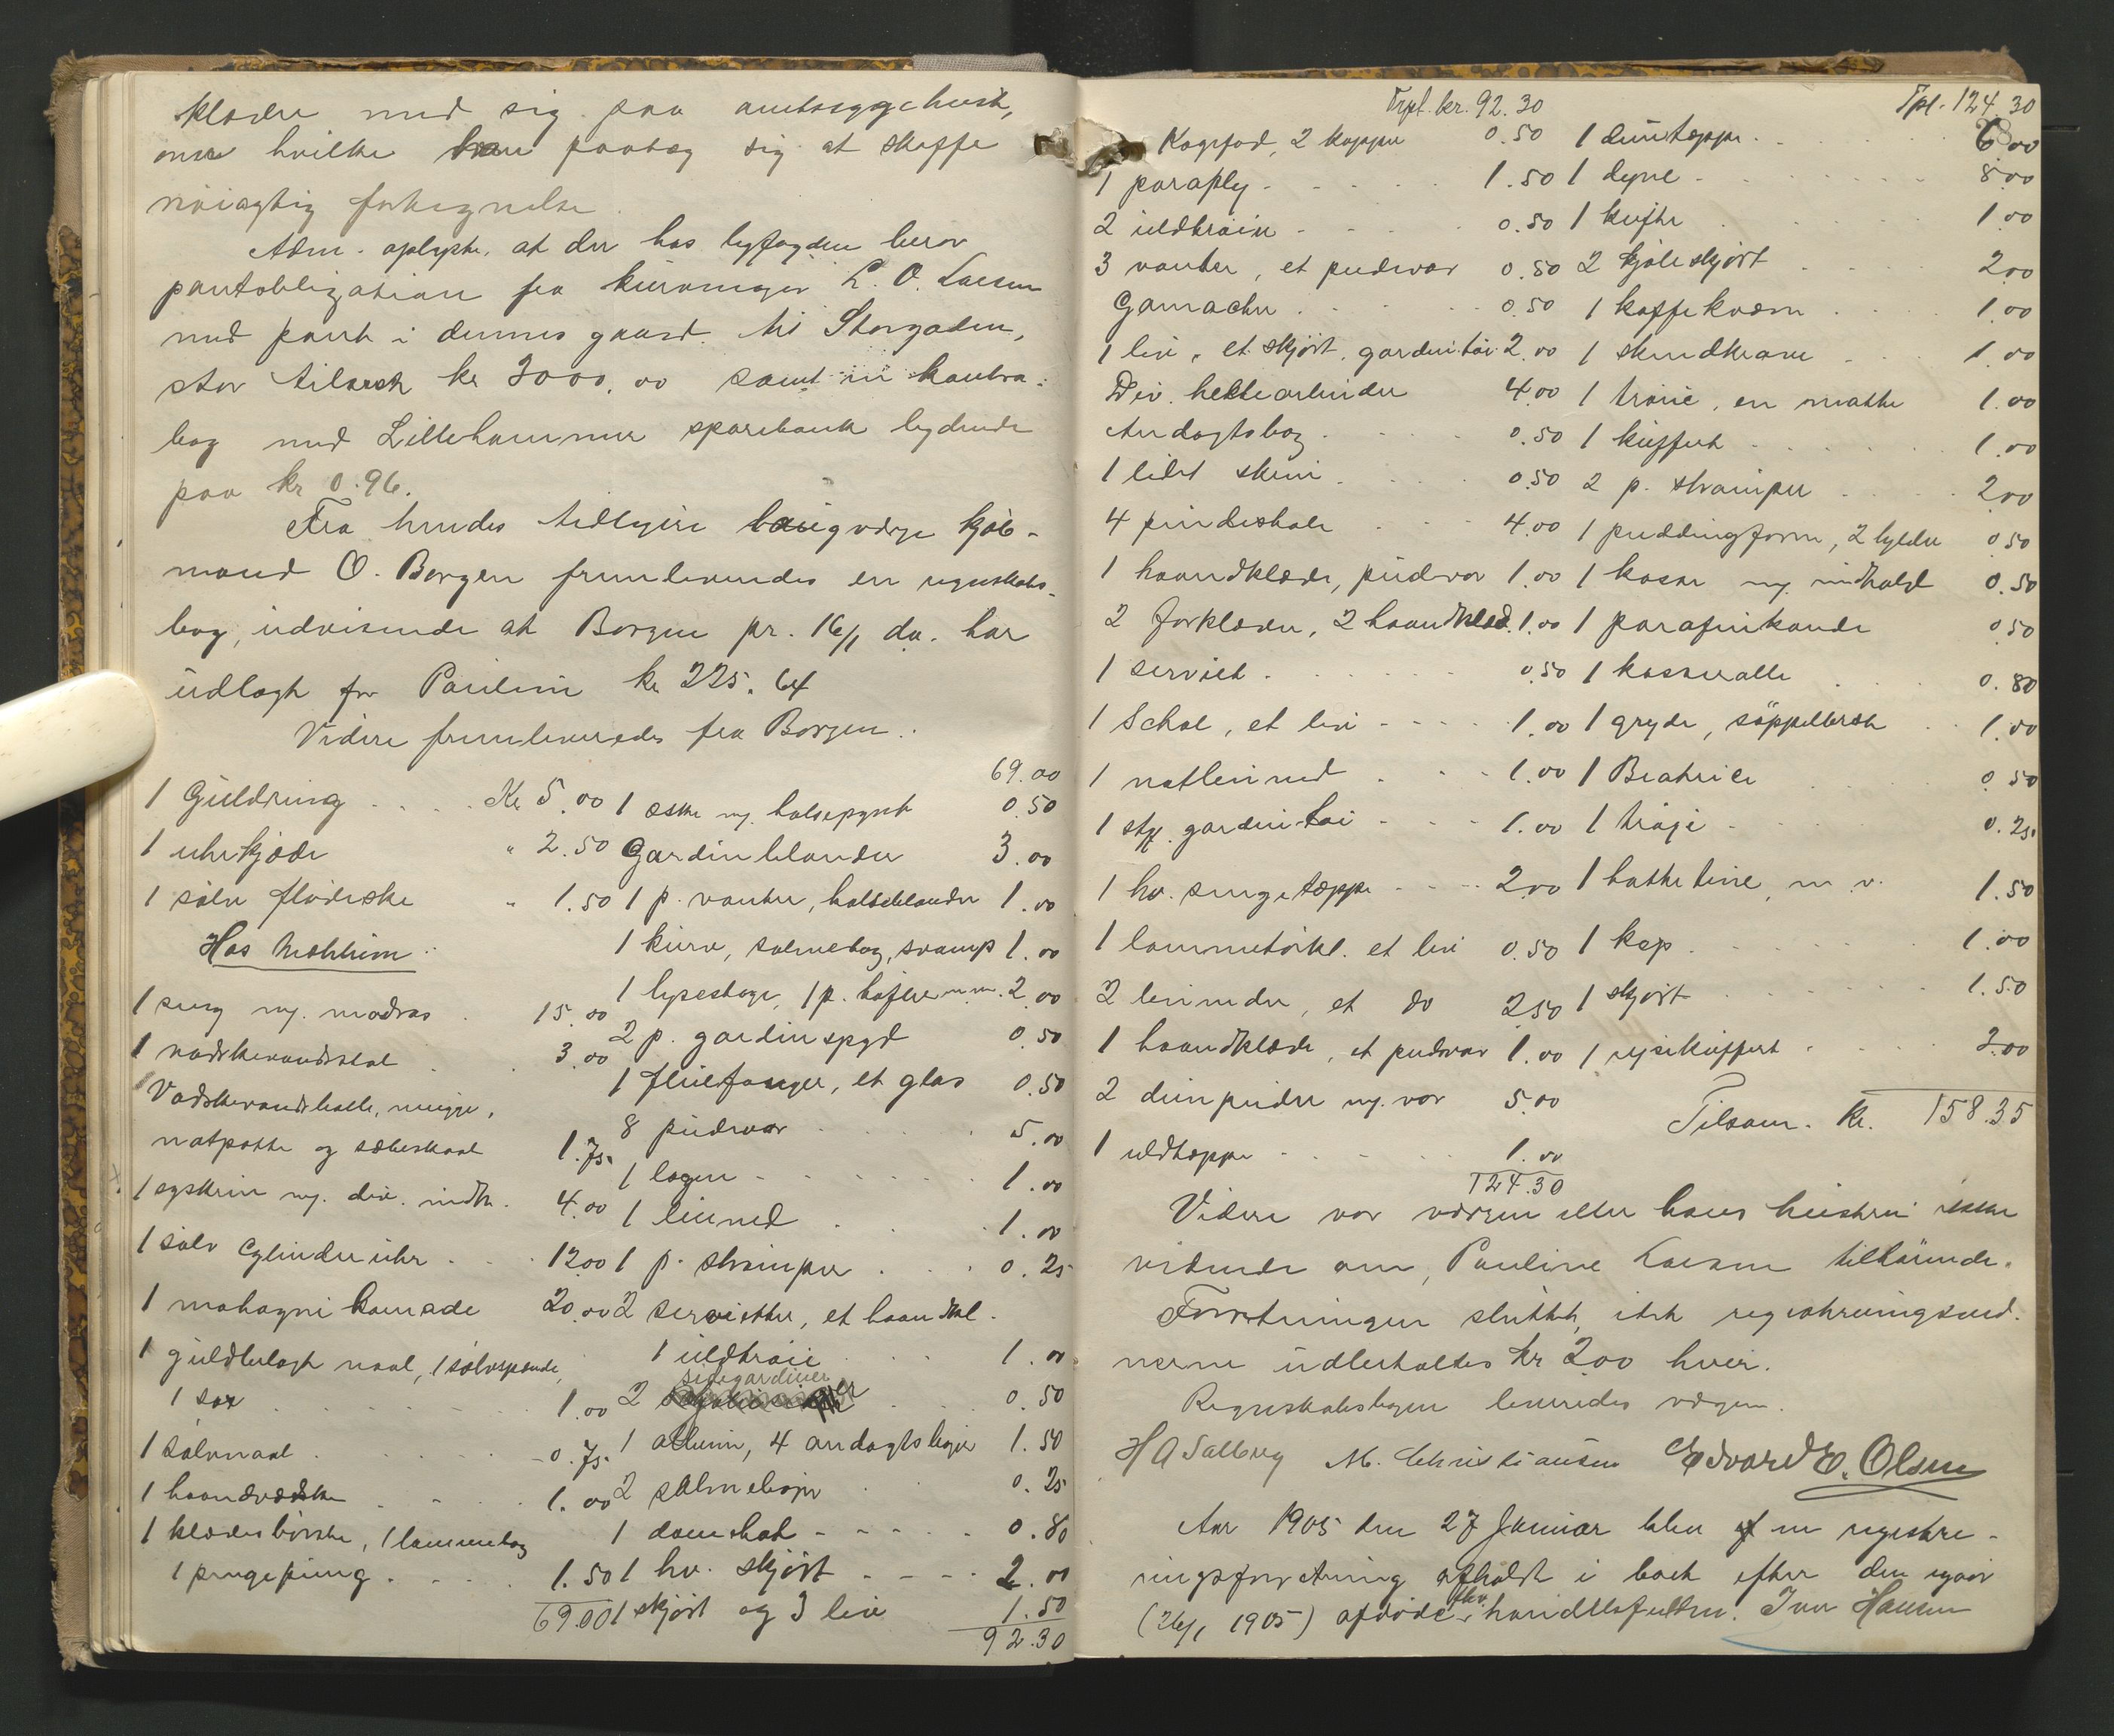 klæder med sig paa amtssygehuset,
over hvilke han paatog sig at skaffe
nøiagtig fortegnelse.
Adm. oplyste, at der hos byfogden beror
pantobligation fra kurvmager L. O. Larsen
med pant i dennes gaard til Storgaden,
stor tilrest kr 3000.00 samt en kontra-
bog med Lillehammer sparebank lydende
paa kr 0.96.
Fra hendes tidligere laugværge kjøb-
mand O. Borgen fremlevendes en regnskabs-
bog, udvisende at Borgen pr. 16/1 da. har
udlagt for Pauline kr 225.64
Videre fremleveredes fra Borgen:
1 Guldring Kr 5.00
1 uhrkjæde " 2.50
1 sølv flødeske " 1.50
Hos
1 seng m. madras 15.00
1 vadskevandsstel 3.00
Vadskevandsballe, mugge,
natpotte og sæbeskaal 1.75
1 syskrin m. div. indh. 4.00
1 sølv Cylinderuhr 12.00
1 mahogni komode 20.00
1 guldbelagt naal, 1 sølvspænde,
1 sax 1.00
1 sølvnaal 0.75
1 haandvædske 1.00
1 klædesbørste, 1 lommebog
1 pengepung 1.50
69.00
69.00
1 æske m. halsepynt 0.50
Gardinblonder 3.00
1 p. vanter, halseblonder 1.00
1 kurv, salmebog, svamp 1.00
1 lysestage, 1 p. tøfler m.m. 2.00
2 p. gardinspyd 0.50
1 fluefanger, et glas 0.50
8 pudevar 5.00
1 lagen 1.00
1 linned 1.00
1 p. strømper 0.25
2 servietter, et haandkl.
1 uldtrøie 1.00
2 sidegardiner 0.50
1 album, 4 andagtsbøger 1.50
2 salmebøger 0.25
1 damehat 0.80
1 hv. skjørt 2.00
1 skjørt og 3 liv 1.50
92.30
Trpt. kr. 92.30
Kagefad, 2 kopper 0.50
1 paraply 1.50
2 uldtrøier 0.50
3 vanter, et pudevar 0.50
Gamacher 0.50
1 liv, et skjørt, gardintøi 2.00
Div. heklearbeider 4.00
Andagtsbog 0.50
1 lidet skrin 0.50
4 pindestole 4.00
1 haandklæde, pudevar 1.00
2 forklæder, 2 haandklæd. 1.00
1 serviet 0.50
1 Schal, et liv 1.00
1 natlinned 1.00
1 stk. gardintøi 1.00
1 hv. sengetæppe 2.00
1 lommetørkl. et liv 0.50
2 linneder, et do 2.50
1 haandklæde, et pudevar 1.00
2 dunpuder m. var 5.00
1 uldtæppe 1.00
124.30
Tpt. 124.30
1 duntæppe 6.00
1 dyne 8.00
1 kufte 1.00
2 kjoleskjørt 2.00
1 kaffekværn 1.00
1 skindkrave 1.00
1 trøie, en matte 1.00
1 kuffert 1.00
2 p. strømper 2.00
1 puddingform, 2 hylder 0.50
1 kasse m. indhold 0.50
1 parafinkande 0.50
1 kasserolle 0.80
1 gryde, søppelbræt 1.00
1 Beatrice 0.50
1 trøje 0.25
1 hatteæske, m. v. 1.50
1 kap 1.00
1 skjørt 1.50
1 reisekuffert 3.00
Tilsam. Kr. 158.35
Videre var værgen eller hans hustru ikke
vidende om, Pauline Larsen tilhørende.
Forretningen sluttet, idet registreringsvid-
nerne udbetaltes kr 2.00 hver.
Regnskabsbogen leveredes værgen.
H A Salberg M. Christiansen Edvard E. Olsen
Aar 1905 den 27 Januar blev en registre-
ringsforretning afholdt i boet efter den igaar
(26/1 1905) afdøde fhv. handelsfuldm. Iver Hansen